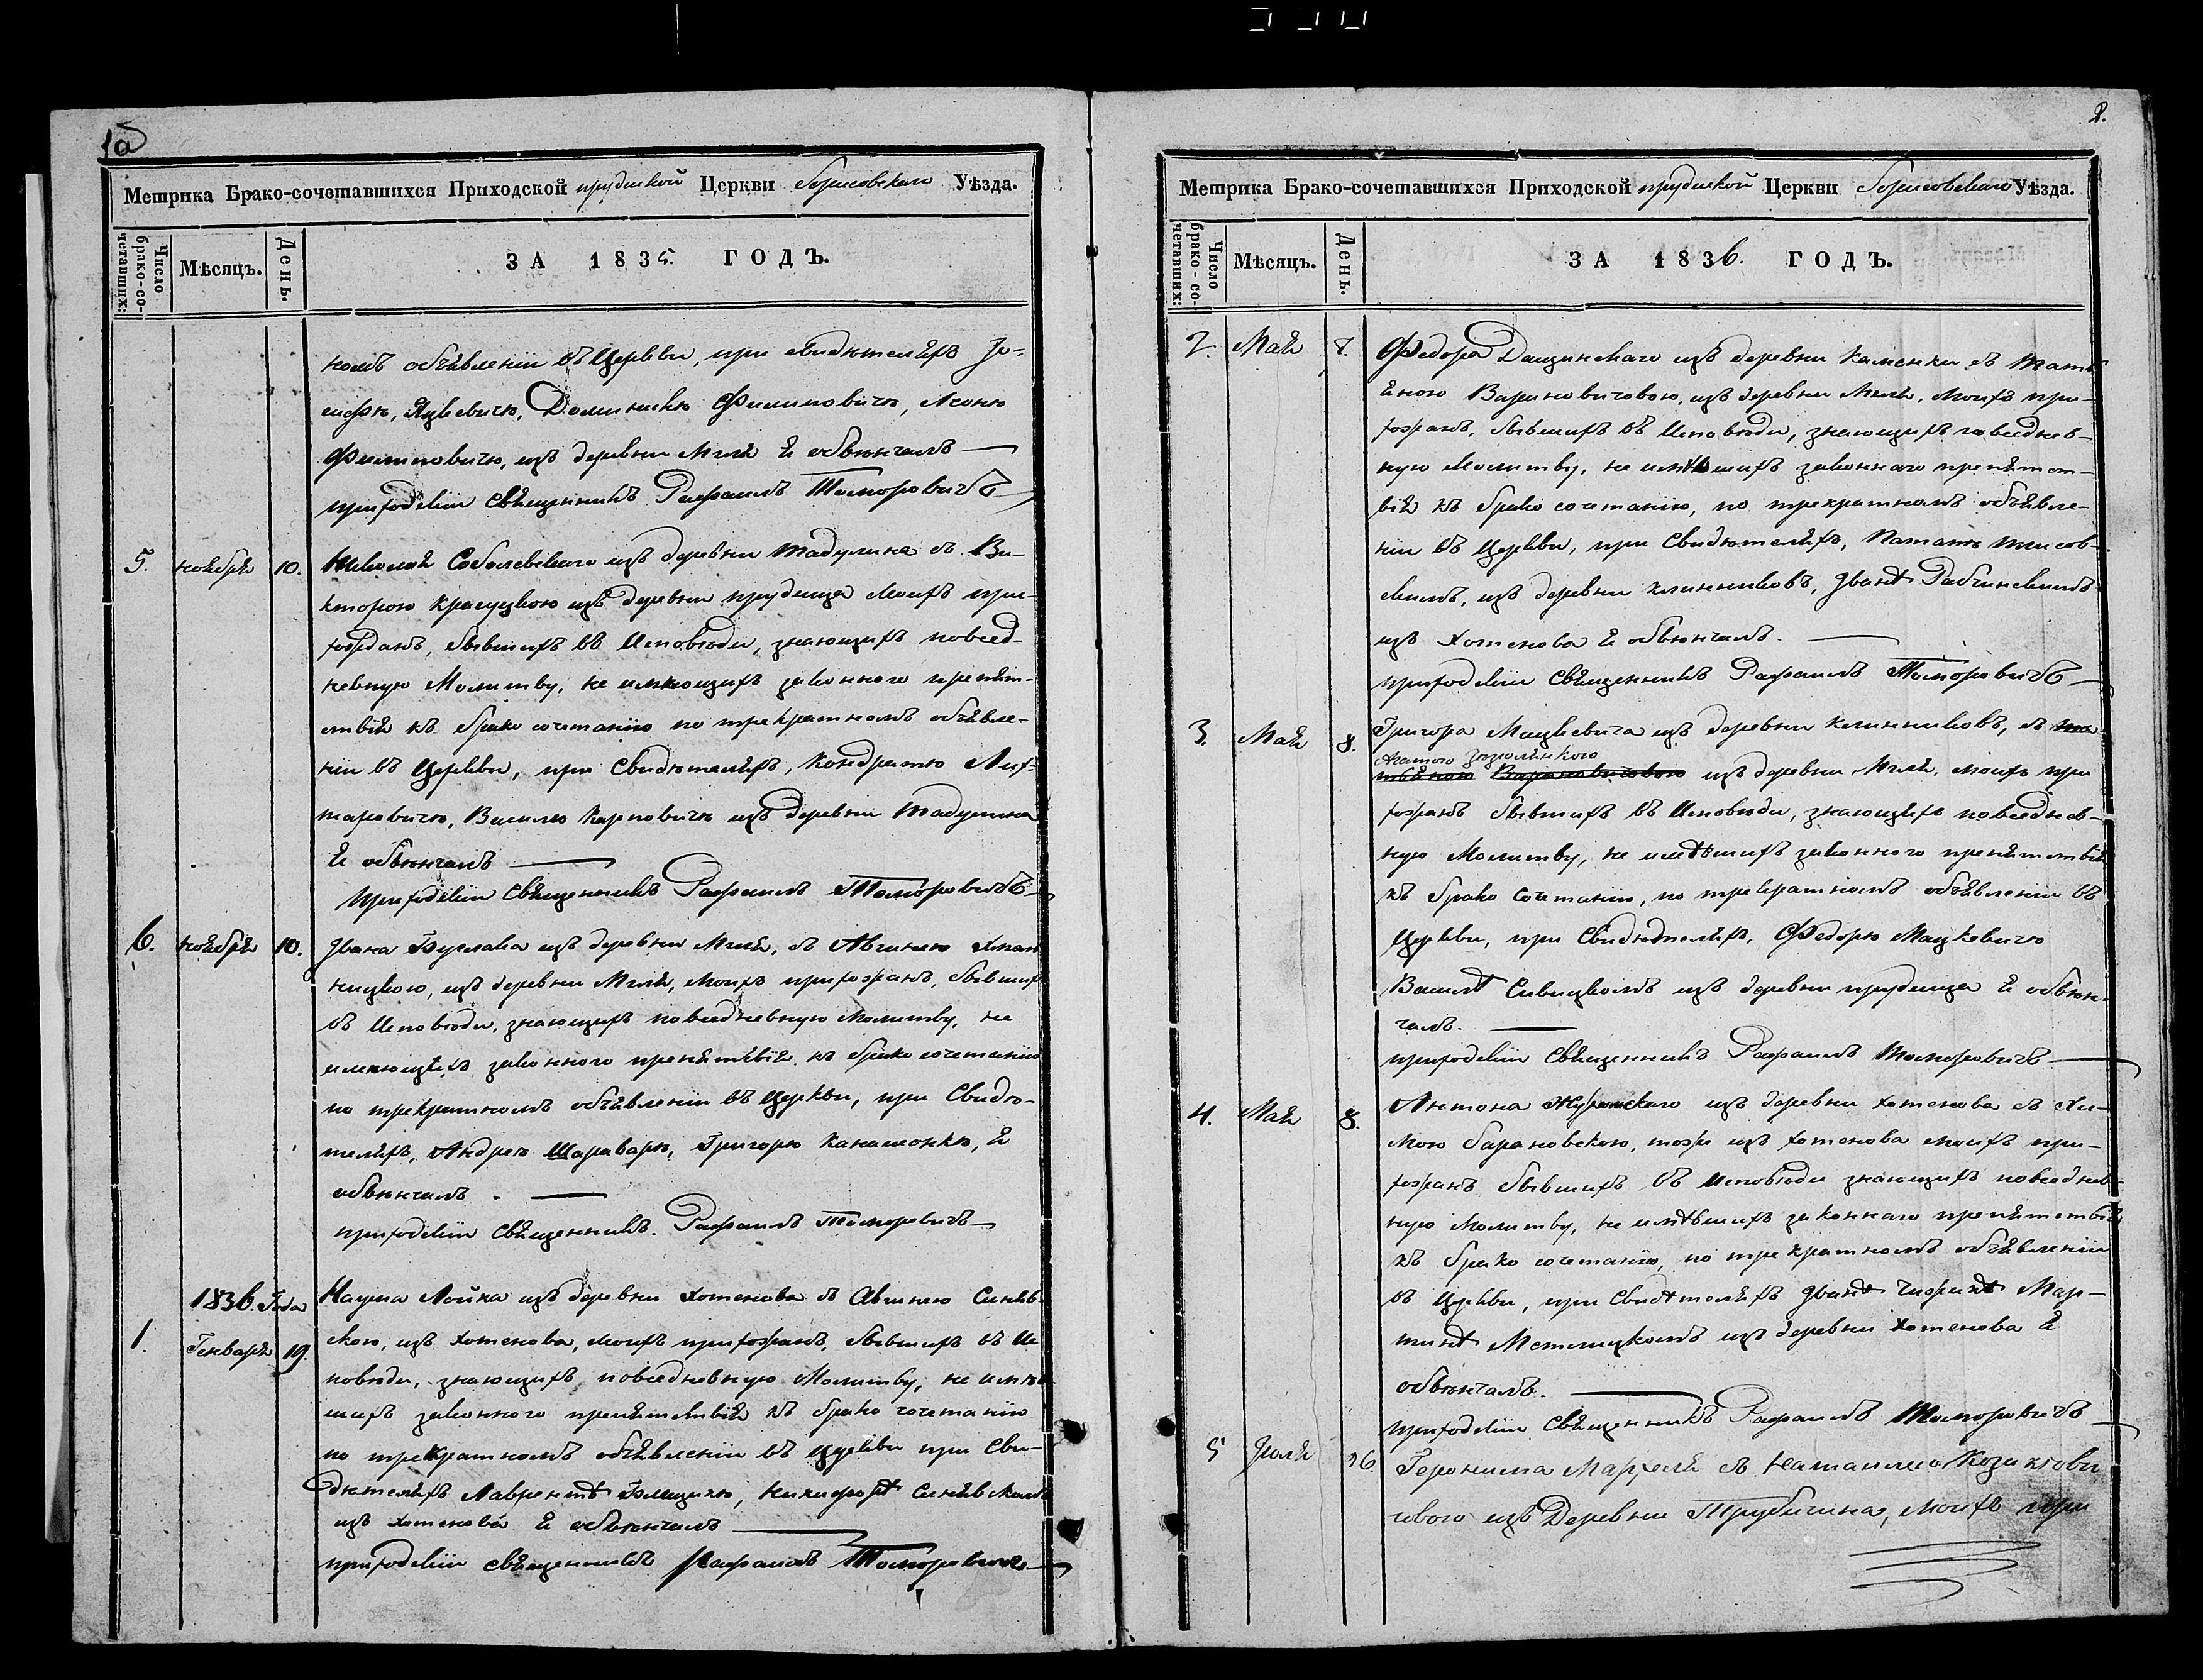 1об
Метрика Брако-сочетавшихся Приходской прудиской Церкви борисовскаго Уѣзда.
Число брако-со-четавших:
Мѣсяцъ.
День.
ЗА 1835. ГОДЪ.
номъ объѣвленіи въ Церкви, при свидѣтелѣхъ Іо-
сифѣ, Яцкевичѣ, Доминикѣ Филиповичѣ, Леонѣ
Филиповичѣ, изъ деревни Милѣ и обвѣнчалъ —
приходскіи Свѣщенникъ Рафаилъ Томоровичъ
5. ноѣбрѣ 10. Николаѣ Соболевскаго изъ деревни Тадулина съ Ви-
кторою красуцкою изъ деревни прудища Моихъ при-
хожанъ, бывшихъ въ Исповѣди, знающихъ повсед-
невную Молитву, не имѣющихъ законного препѣт-
ствіѣ къ брако сочетанію по трекратномъ объѣвле-
ніи въ Церкви, при Свидѣтелѣхъ, Кондратѣ Лих-
таровичѣ, Василѣ Карповичѣ изъ деревни Тадулина
И обвѣнчалъ —
Приходскіи Свѣщенникъ Рафаилъ Томоровичъ
6. ноѣбрѣ 10. Ивана Буглака изъ деревни Милѣ, съ Авгинию
ницкою, изъ деревни Милѣ, Моихъ прихожанъ, бывших
въ Исповѣди, знающихъ повседневную Молитву, не
имеющихъ законного препѣтствіѣ къ брако сочетанію
по трекратномъ объѣвленіи въ Церкви, при Свидѣ-
телѣхъ, Андрею Шараварѣ, Григорѣ Канашонкѣ, И
обвѣнчалъ. —
приходскіи Свѣщенникъ. Рафаилъ Томоровичъ
1836. Года
1. Генварѣ 19. Наума Лойка изъ деревни Хотенова съ Авгинею Синѣв-
скою, изъ Хотенова, Моихъ прихожанъ, бывшихъ въ Ис
повѣди, знающихъ повседневную Молитву, не имѣв-
шихъ законного препѣтствіѣ къ брако сочетанію
по трекратномъ объѣвленіи въ Церкви при Сви-
дѣтелѣхъ Лаврентѣ Голицикѣ, Никифорѣ Синѣвскомъ
изъ Хотенова И обвѣнчалъ —
приходскіи свѣщенникъ Рафаилъ Томоровичъ
2.
Метрика Брако-сочетавшихся Приходской прудиской Церкви Борисовскаго Уѣзда.
Число брако-со-четавших:
Мѣсяцъ.
День.
ЗА 1836. ГОДЪ.
2. Маѣ 8. Федора Дащинскаго изъ деревни Каменки съ Тать
ѣною Вариновичовою, изъ деревни Милѣ, Моихъ при-
хожанъ, бывшихъ въ Исповѣди, знающихъ повседнев-
ную Молитву, не имѣвшихъ законнаго препѣтст-
віѣ къ брако сочетанію, по трекратномъ объѣвле-
ніи въ Церкви, при Свидѣтелѣхъ, Патапѣ
скимъ, изъ деревни клинниковъ, Иванѣ Рабчинскимъ
изъ Хотенова И обвѣнчалъ. —
приходскіи Свѣщенникъ Рафаилъ Томоровичъ
3. Маѣ 8. Григора Мацкевича изъ деревни Клинниковъ, съ та
Агатою Зезюлинкого
тьѣною Вариновичовою изъ деревни Милѣ, моихъ при
хожанъ бывшихъ въ Исповѣди, знающихъ повседнев-
ную Молитву, не имѣвшихъ законного препѣтствіѣ
къ брако Сочетанію, по трекратномъ объѣвленіи въ
Церкви, при Свидѣтелѣхъ, Федорѣ Мацкевичѣ
Василѣ Сивицкомъ изъ деревни прудища И обвѣн-
чалъ. —
приходскіи Свѣщенникъ Рафаилъ Томоровичъ
4. Маѣ 8. Антона Журомскаго изъ деревни Хотенова съ Ан-
ною барановскою, тожъ изъ Хотенова моихъ при-
хожанъ бывшихъ въ исповѣди знающихъ повседнев-
ную Молитву, не имѣвшихъ законнаго препѣтствіѣ
къ брако сочетанію, по трекратномъ объѣвленіи
въ Церкви, при Свидѣтелѣхъ Иванѣ Мар-
тинѣ Метелицкомъ изъ деревни Хотенова И
обвѣнчалъ. —
приходскіи Свѣщенникъ Рафаилъ Томоровичъ
5 Іюлѣ 26. Геронима Мархелѣ съ Наталиею Козакови
човою изъ Деревни Трубичина, Моихъ при